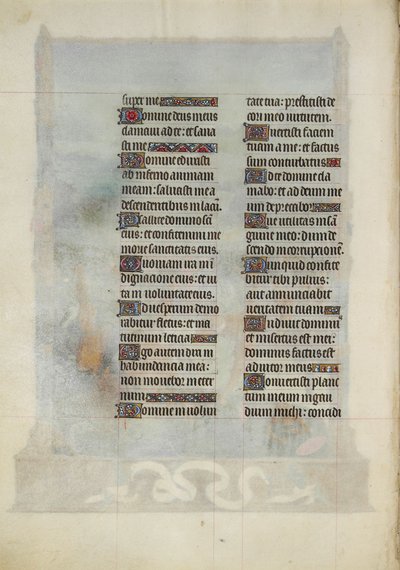 super me
Domine deus meus
clamaui ad te: et sana
sti me
Domine eduxisti
ab inferno animam
meam: saluasti me a
descendentibus in lacū.
Psallite domino sancti
eius: et confitemini me
morie sanctitatis eius.
Quoniam ira in in
dignacione eius: et ui
ta in uoluntate eius.
Ad uesperum demo
rabitur fletus: et ma
tutinum leticia
Ego autem dixi in
habundencia mea:
non mouebor in eter
num
Domine in uolun
tate tua: prestitisti de
cori meo uirtutem.
Auertisti faciem
tuam a me: et factus
sum conturbatus
Ad te domine cla
mabo: et ad deum me
um deprecabor
Que utilitas in san
guine meo: dum de
scendo in corrupcionē.
Nunquid confite
bitur tibi puluis:
aut annunciabit
ueritatem tuam
Audiuit dominus
et misertus est mei:
dominus factus est
adiutor meus
Conuertisti planc
tum meum in gau
dium michi: concidi